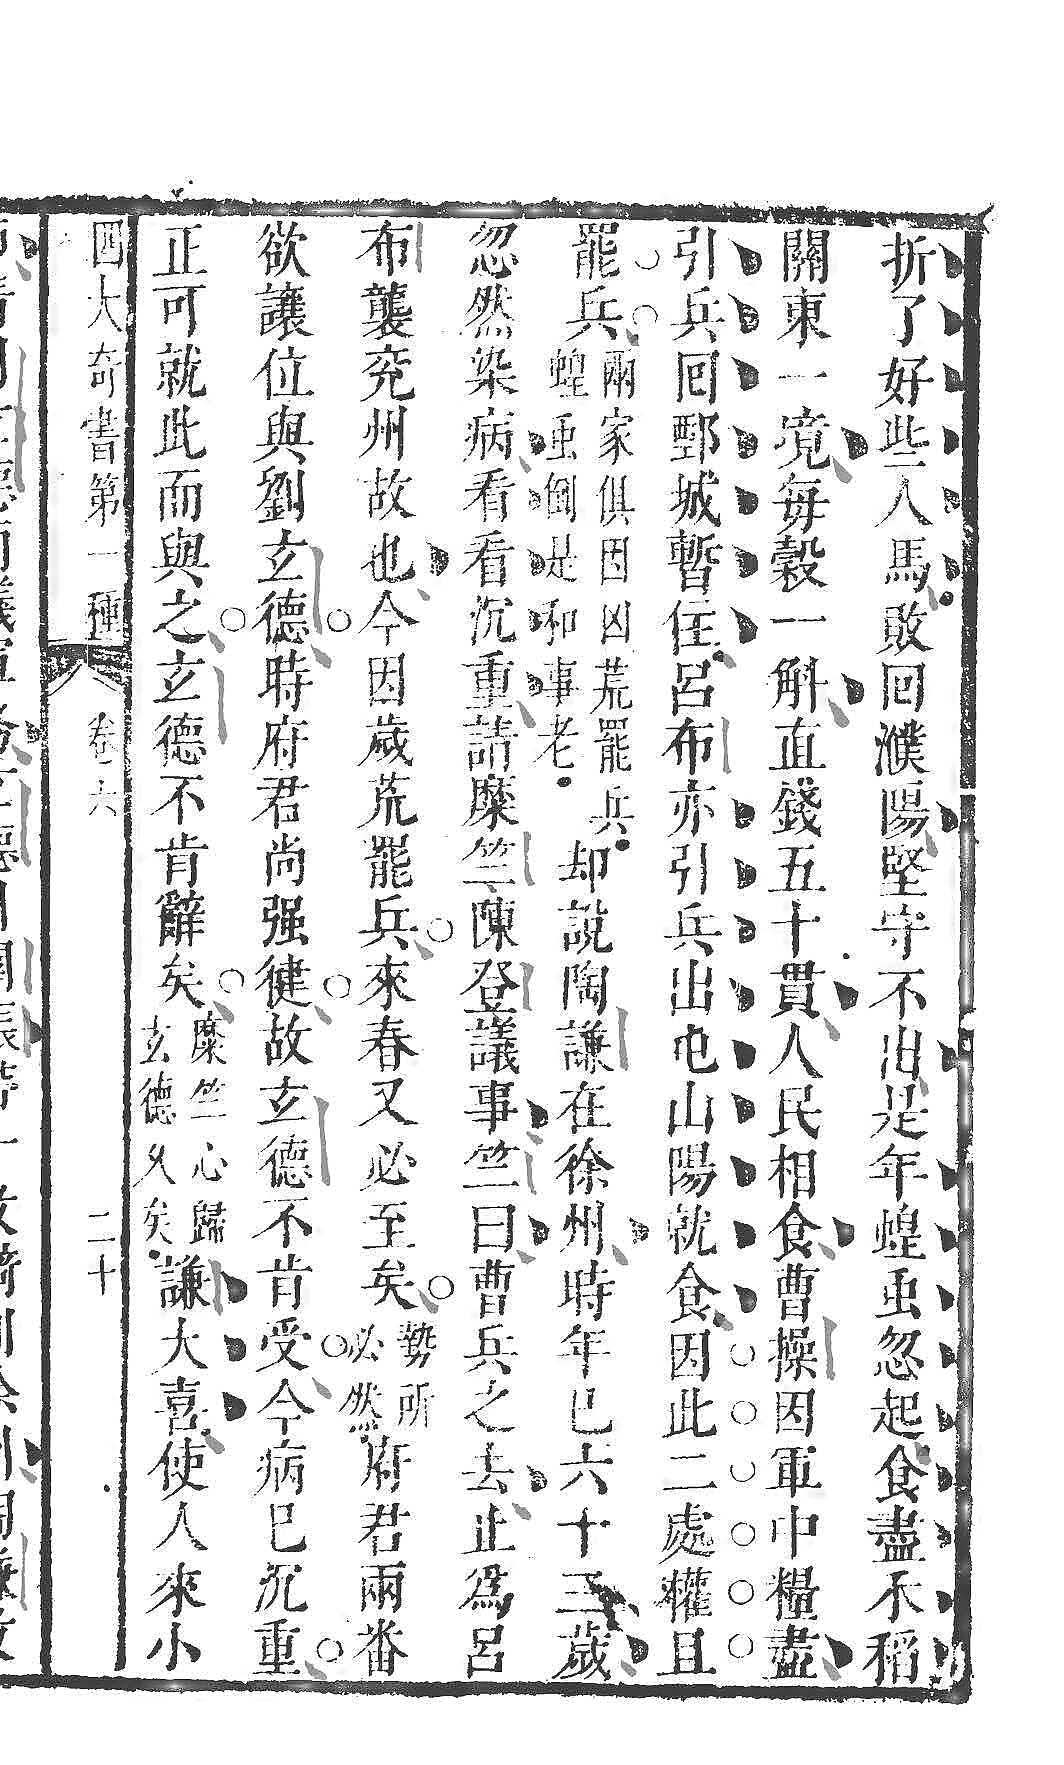 折了好些人馬敗回濮陽堅守不出是年蝗虫忽起食盡禾稻
關東一境每穀一斛直錢五十貫人民相食曹操因軍中糧盡
引兵回鄄城暫住呂布亦引兵出屯山陽就食因此二處權且
罷兵兩家俱因凶荒罷兵蝗虫倒是和事老却說陶謙在徐州時年已六十三歲
忽然染病看看沉重請糜竺陳登議事竺曰曹兵之去止為呂
布襲兖州故也今因歲荒罷兵來春又必至矣勢所必然府君兩番
欲讓位與劉玄德時府君尚强健故玄德不肯受今病已沉重
正可就此而與之玄德不肯辭矣糜竺心歸玄德久矣謙大喜使人來小
四大奇書第一種 卷六 二十